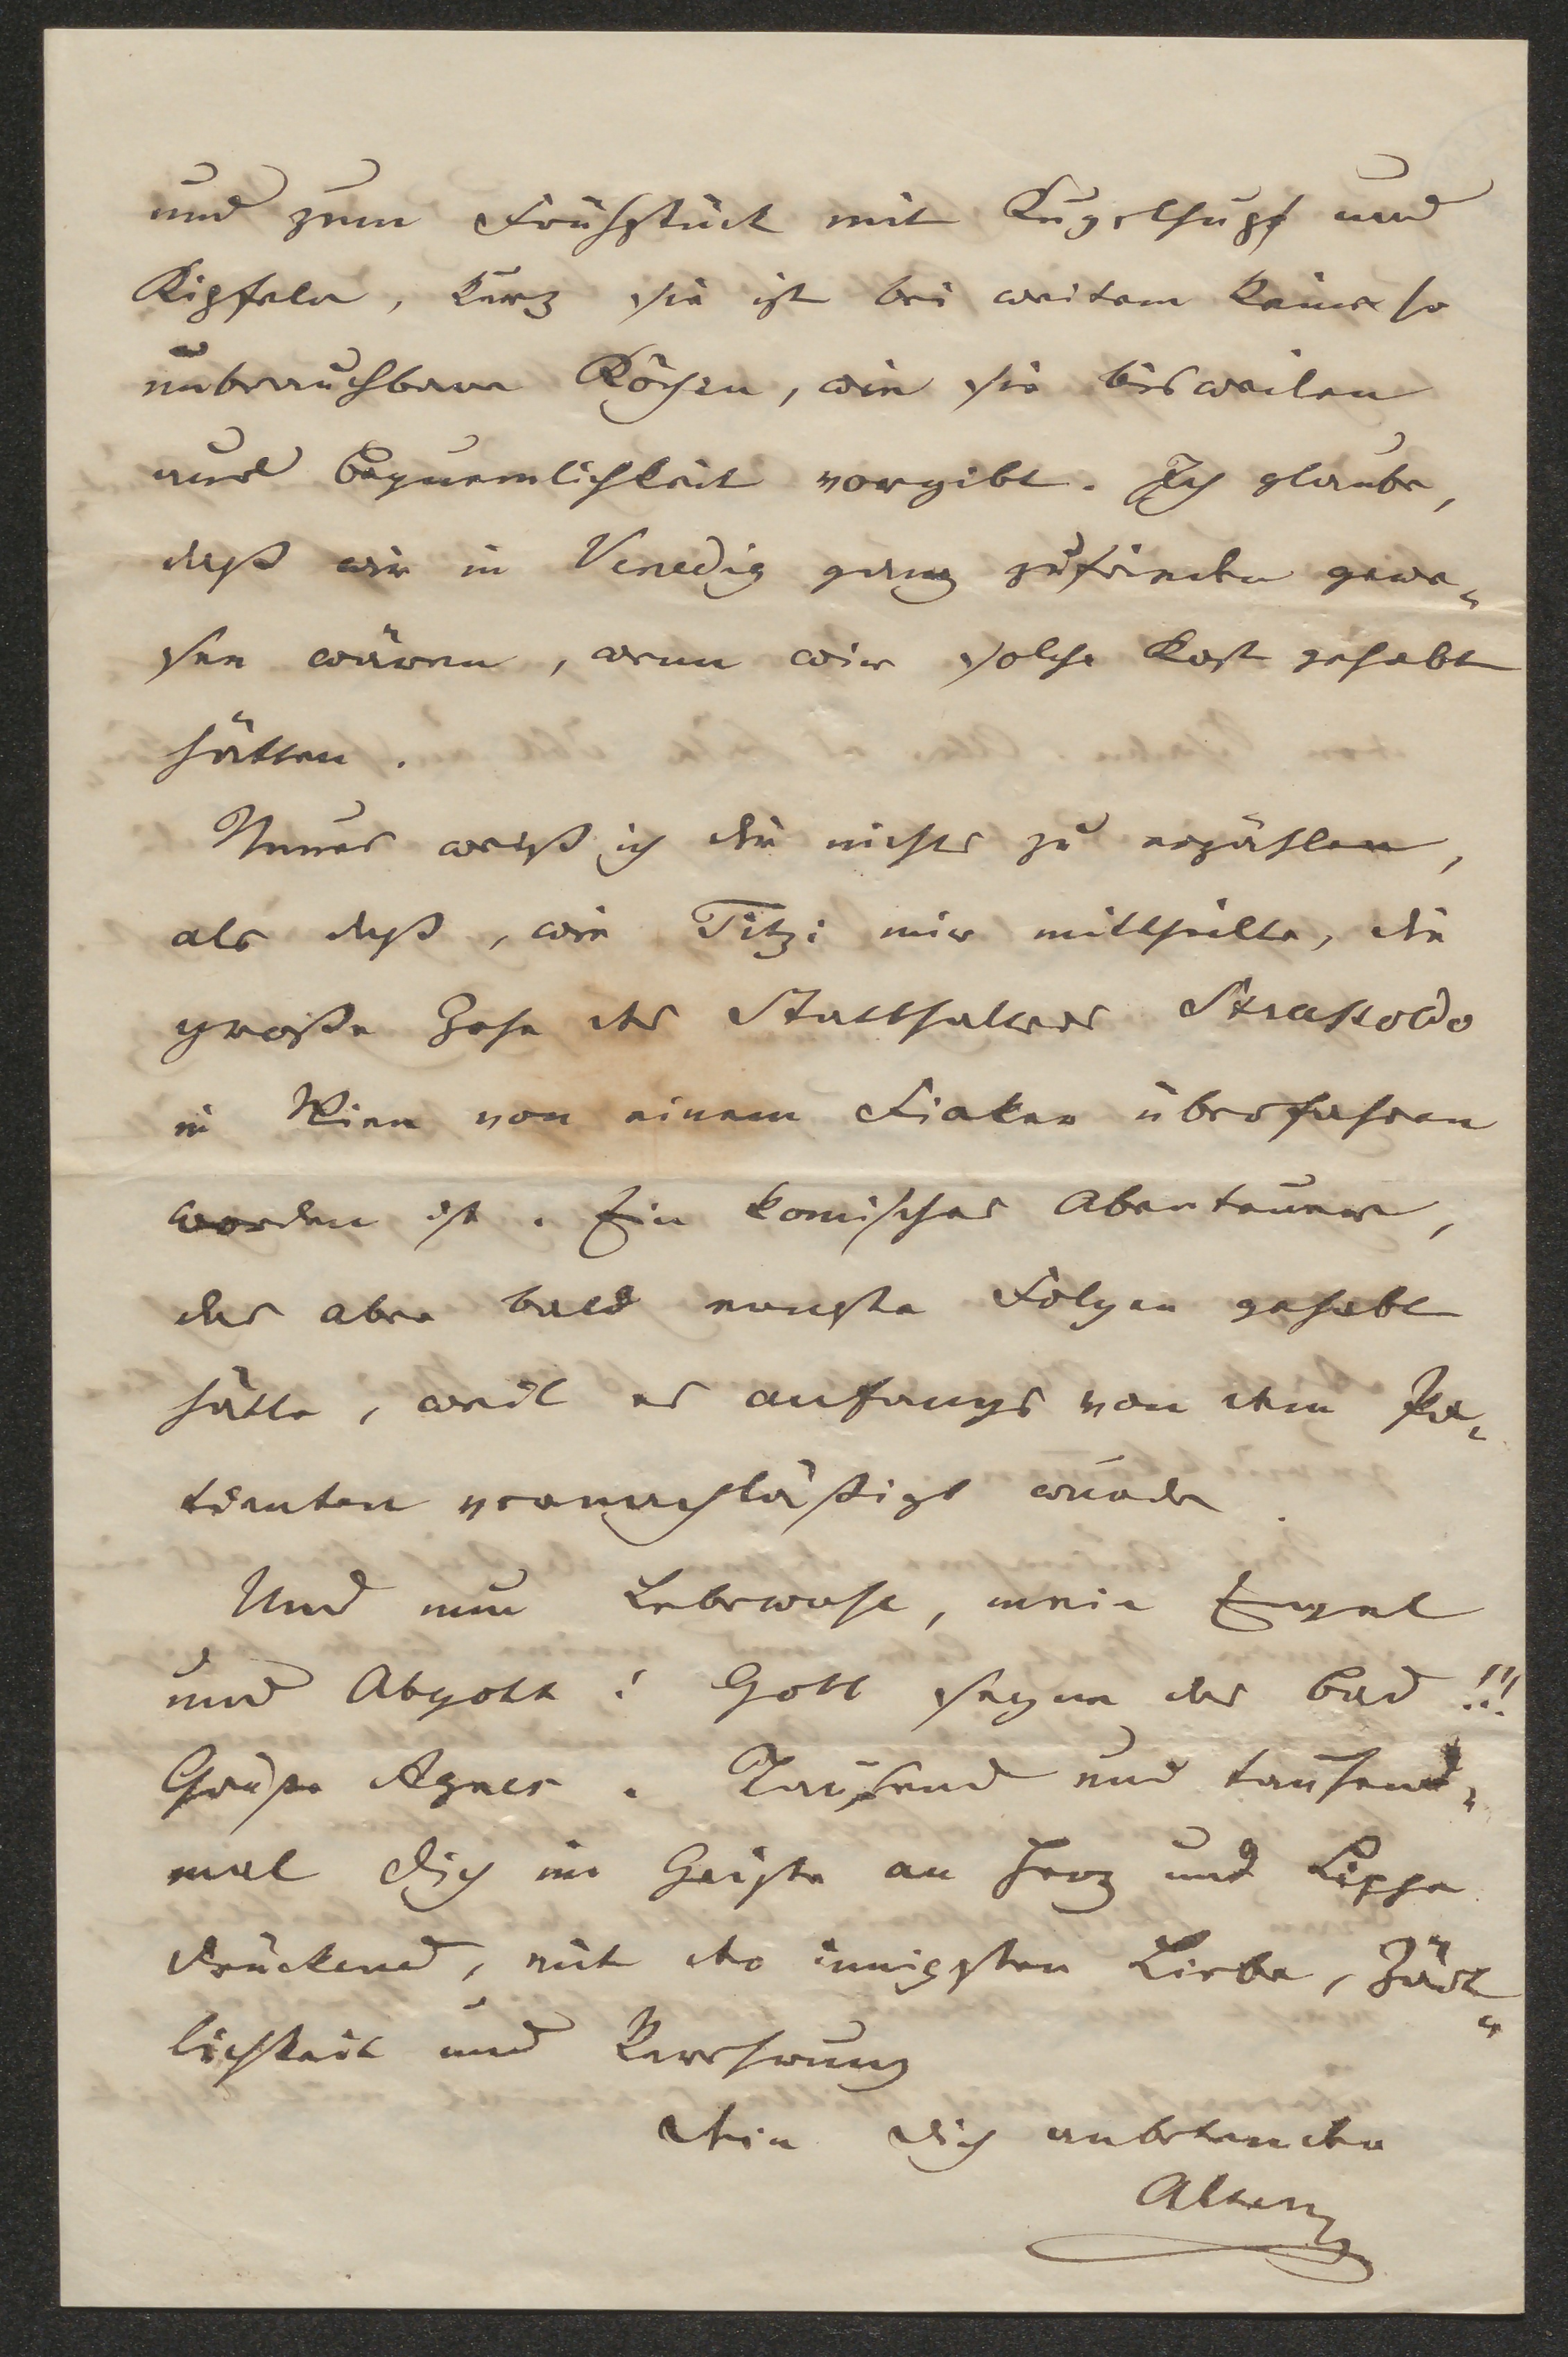 und zum Frühstück mit Kugelhupf und
Kipfeln, kurz sie ist bei weitem keine so
unbrauchbare Köchin, wie sie bisweilen
aus Bequemlichkeit vorgibt. Ich glaube,
daß wir in Venedig ganz zufrieden gewe-
sen wären, wenn wir solche Kost gehabt
hätten.
Neues weiß ich dir nichts zu erzählen,
als daß, wie Titzi mir mittheilte, die
große Zehe des Statthalters Strassoldo
in Wien von einem Fiaker überfahren
worden ist. Ein komisches Abenteuer,
das aber bald ernste Folgen gehabt
hätte, weil es anfangs von dem Pa-
tienten vernachläßigt wurde.
Und nun Lebewohl, mein Engel
und Abgott! Gott segne das Bad!!!
Grüße Agnes. Tausend und tausend-
mal dich im Geiste an Herz und Lippe
drückend, mit der innigsten Liebe, Zärt-
lichkeit und Verehrung
dein dich anbetender